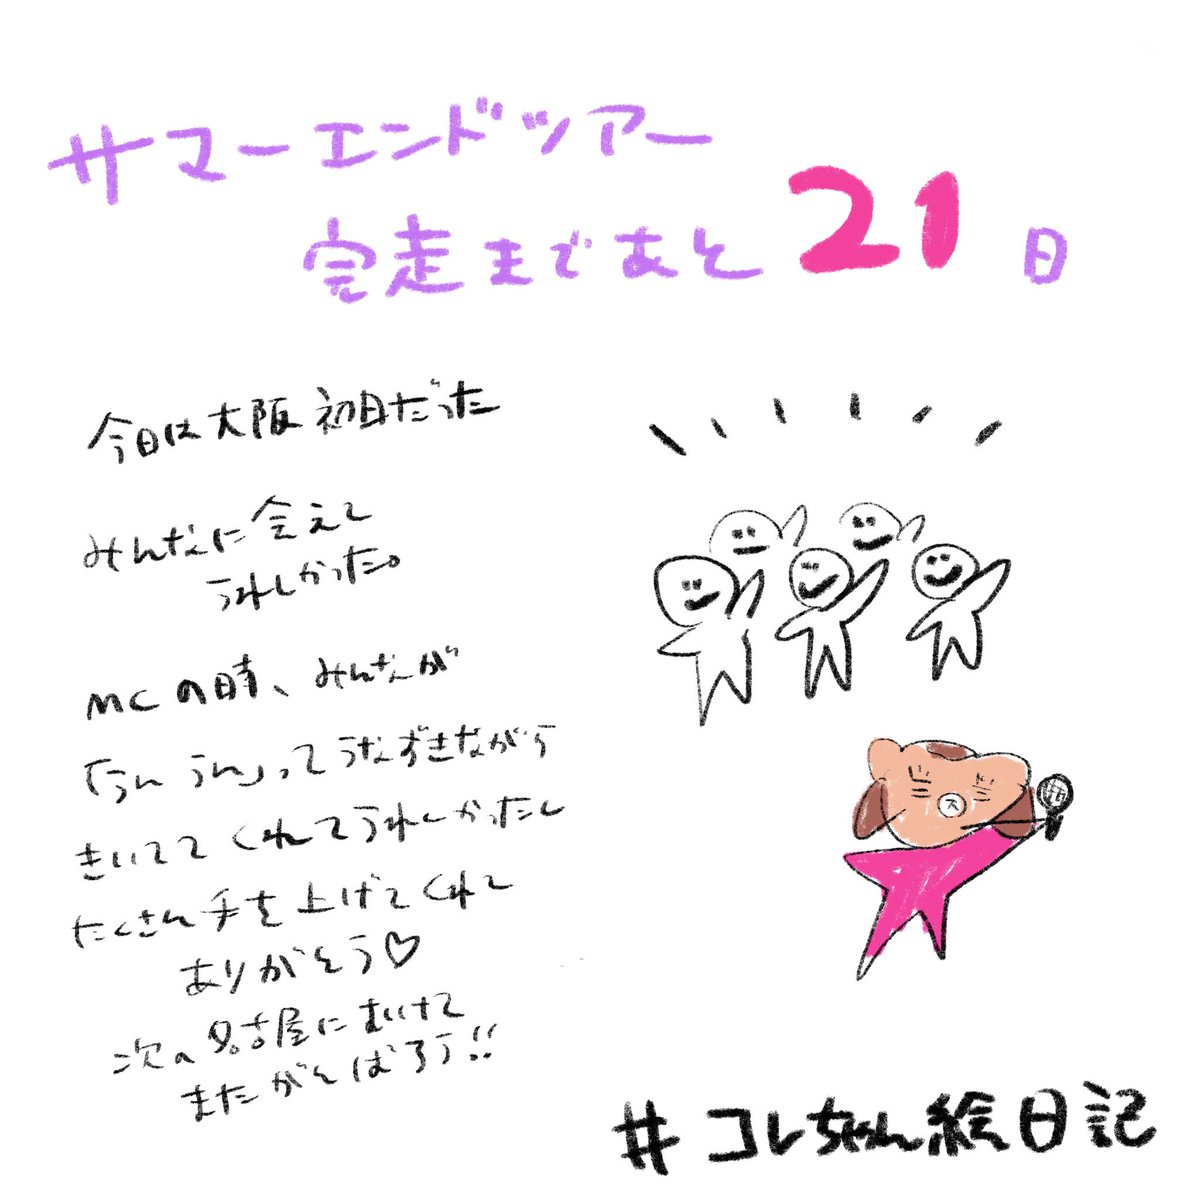 サマーエンドツアー
完走まであと21日
今日は大阪初日だった
みんなに会えて
うれしかった。
MCの時、みんなが
「うん うん」ってうなずきながら
きいててくれてうれしかったし
たくさん手を上げてくれて
ありがとう♡
次の名古屋にむけて
またがんばろう!!
ス
#コレちゃん絵日記